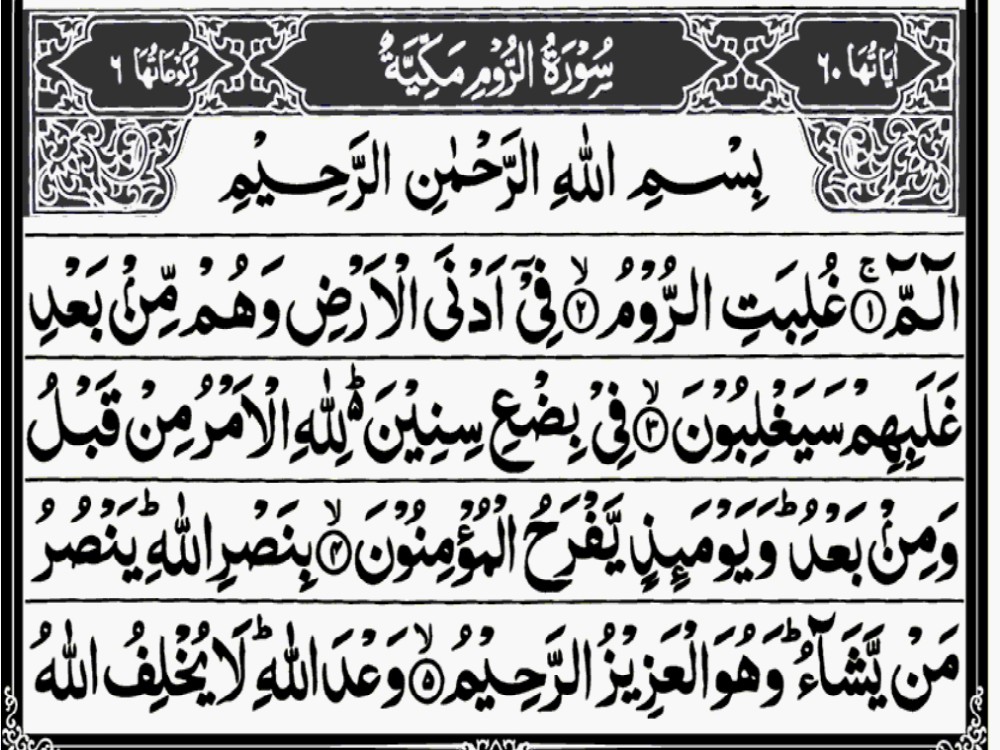 اٰيَاتُهَا ٦٠ سُوْرَةُ الرُّوْمِ مَكِّيَّةٌ رُكُوْعَاتُهَا ٦
بِسْمِ اللّٰهِ الرَّحْمٰنِ الرَّحِيْمِ
الٓمّٓ ۚ﴿۱﴾ غُلِبَتِ الرُّوْمُ ۙ﴿۲﴾ فِیْۤ اَدْنَی الْاَرْضِ وَهُمْ مِّنْۢ بَعْدِ
غَلَبِهِمْ سَيَغْلِبُوْنَ ۙ﴿۳﴾ فِیْ بِضْعِ سِنِيْنَ ۬ؕ لِلّٰهِ الْاَمْرُ مِنْ قَبْلُ
وَمِنْۢ بَعْدُ ؕ وَيَوْمَىِٕذٍ يَّفْرَحُ الْمُؤْمِنُوْنَ ۙ﴿۴﴾ بِنَصْرِ اللّٰهِ ؕ يَنْصُرُ
مَنْ يَّشَآءُ ؕ وَهُوَ الْعَزِيْزُ الرَّحِيْمُ ۙ﴿۵﴾ وَعْدَ اللّٰهِ ؕ لَا يُخْلِفُ اللّٰهُ